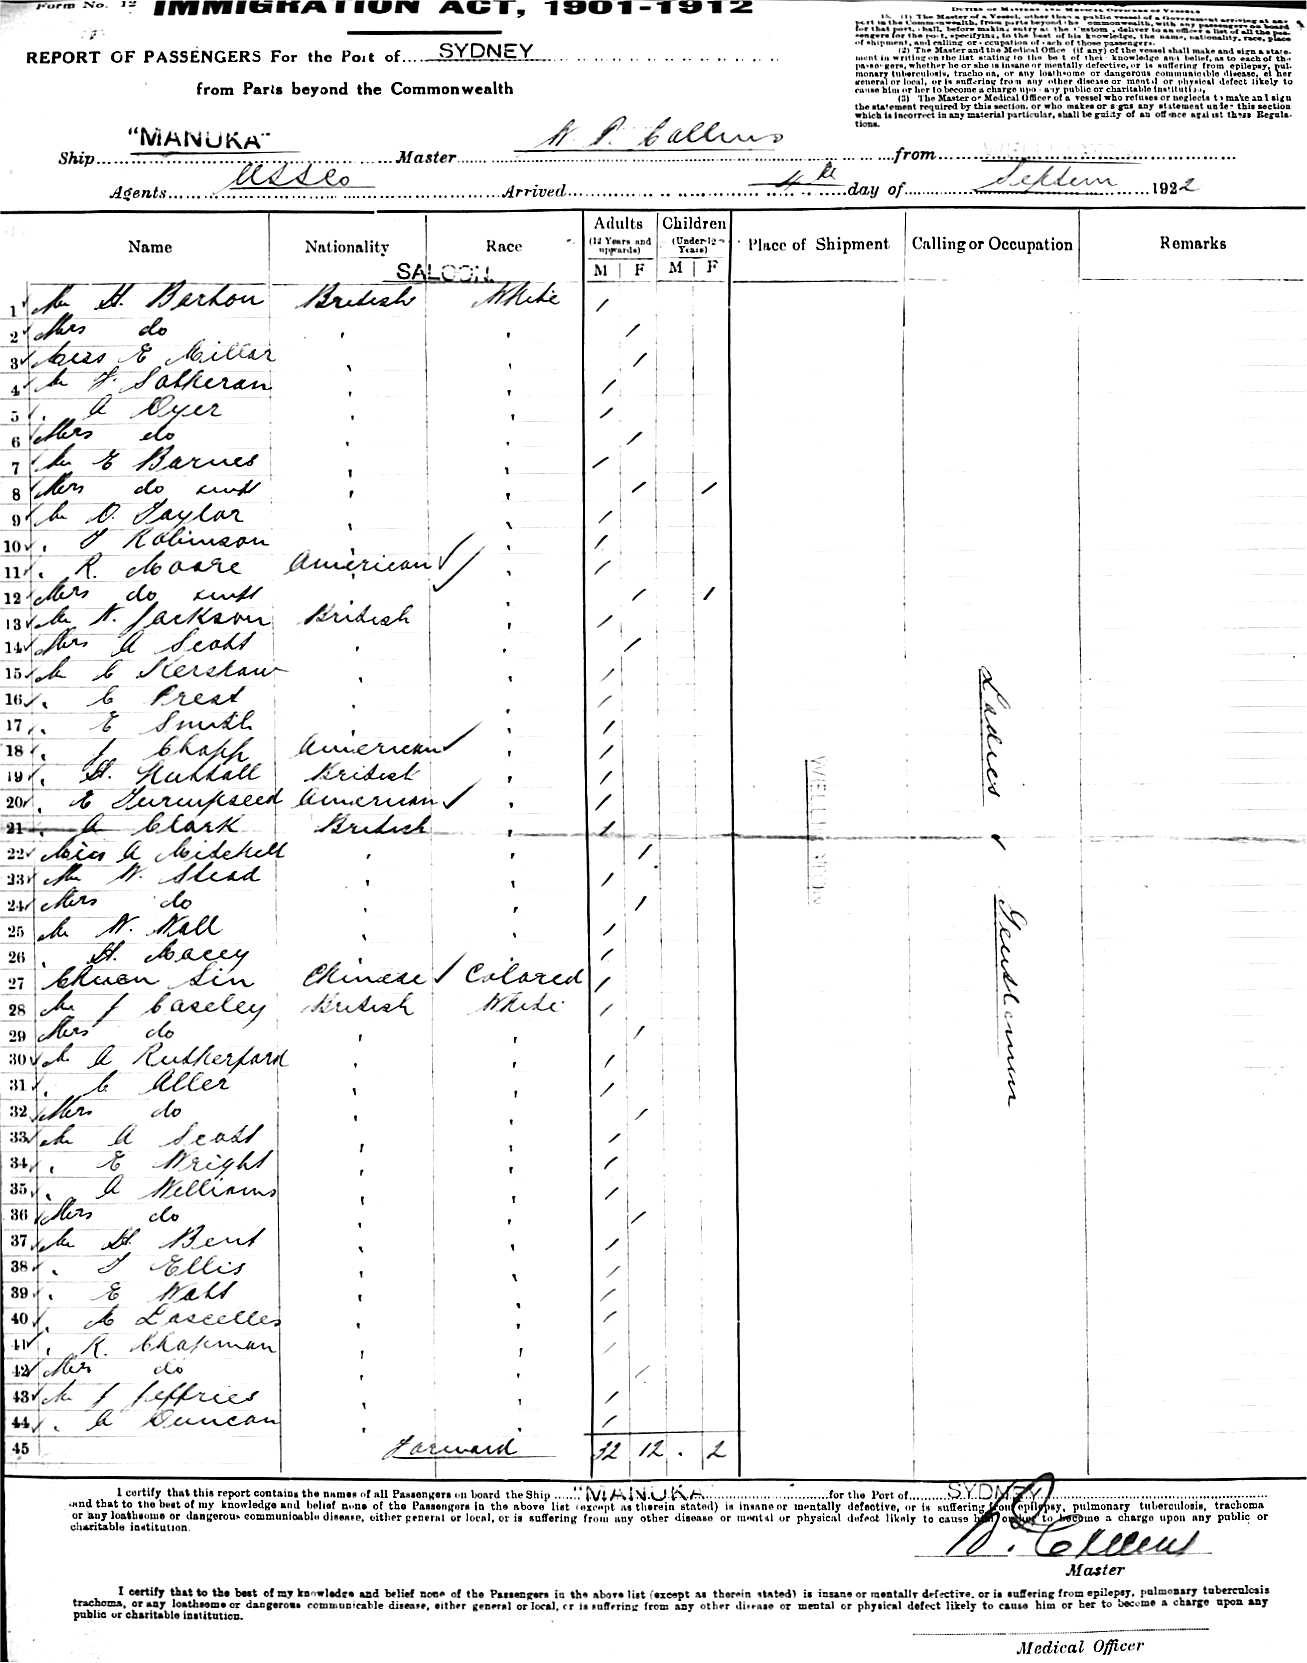 Form No. 12
IMMIGRATION ACT, 1901-1912
REPORT OF PASSENGERS For the Port of SYDNEY
from Parts beyond the Commonwealth
DUTIES OF MASTERS AND MEDICAL OFFICERS OF VESSELS
(2) The Master and the Medical Officer (if any) of the vessel shall make and sign a state-
ment in writing on the list stating to the best of their knowledge and belief, as to each of the
passengers, whether he or she is insane or mentally defective, or is suffering from epilepsy, pul-
monary tuberculosis, trachoma, or any loathsome or dangerous communicable disease, either
general or local, or is suffering from any other disease or mental or physical defect likely to
cause him or her to become a charge upon any public or charitable institution.
(3) The Master or Medical Officer of a vessel who refuses or neglects to make and sign
the statement required by this section, or who makes or signs any statement under this section
which is incorrect in any material particular, shall be guilty of an offence against these Regula-
tions.
Ship "MANUKA" Master W. P. Collins from
Agents USSCo Arrived 4th day of Septem 1922
Name Nationality Race Adults (12 Years and upwards) M F Children (Under 12 Years) M F Place of Shipment Calling or Occupation Remarks
SALOON.
1 Mr H. Barton British White /
2 Mrs do " " /
3 Miss E Millar " " /
4 Mr F. Sotheran " " /
5 " A Dyer " " /
6 Mrs do " " /
7 Mr E Barnes " " /
8 Mrs do & inft " " / /
9 Mr O. Taylor " " /
10 " T Robinson " " /
11 " R. Moore American " /
12 Mrs do & inft " / /
13 Mr W. Jackson British " /
14 Mrs A Scott " " /
15 Mr C Kershaw " " /
16 " C Prest " " /
17 " E Smith " " /
18 " J Chapp American " /
19 " H. Nuttall British " /
20 " E Turnipseed American " /
21 " A Clark British " /
22 Miss A Mitchell " " /
23 Mr W. Stead " " /
24 Mrs do " " /
25 Mr W. Wall " " /
26 " H. Macey " " /
27 Chuen Sin Chinese Colored /
28 Mr J Caseley British White /
29 Mrs do " " /
30 Mr A Rutherford " " /
31 " C Aller " " /
32 Mrs do " " /
33 Mr A Scott " " /
34 " E Wright " " /
35 " A Williams " " /
36 Mrs do " " /
37 Mr H. Bent " " /
38 " T Ellis " " /
39 " E Watt " " /
40 " M Lascelles " " /
41 " R. Chapman " " /
42 Mrs do " " /
43 Mr J Jeffries " " /
44 " A Duncan " " /
45 Forward 32 12 . 2
WELLINGTON
Ladies & Gentlemen
I certify that this report contains the names of all Passengers on board the Ship "MANUKA" for the Port of SYDNEY
and that to the best of my knowledge and belief none of the Passengers in the above list (except as therein stated) is insane or mentally defective, or is suffering from epilepsy, pulmonary tuberculosis, trachoma
or any loathsome or dangerous communicable disease, either general or local, or is suffering from any other disease or mental or physical defect likely to cause him or her to become a charge upon any public or
charitable institution.
W. P. Collins
Master
I certify that to the best of my knowledge and belief none of the Passengers in the above list (except as therein stated) is insane or mentally defective, or is suffering from epilepsy, pulmonary tuberculosis
trachoma, or any loathsome or dangerous communicable disease, either general or local, or is suffering from any other disease or mental or physical defect likely to cause him or her to become a charge upon any
public or charitable institution.
Medical Officer